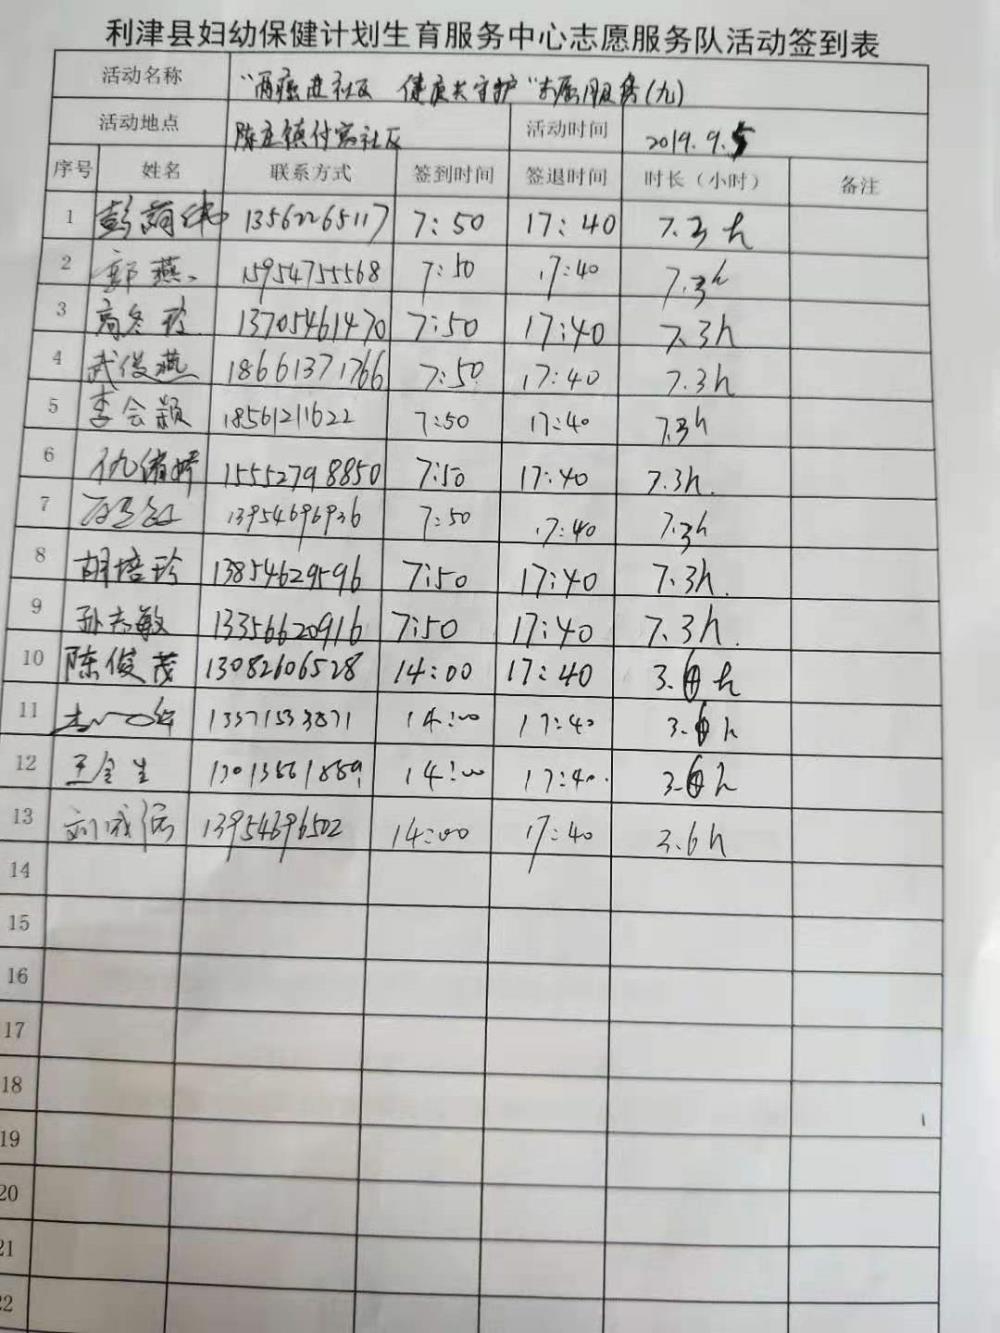 利津县妇幼保健计划生育服务中心志愿服务队活动签到表
活动名称 "两癌进社区 健康共守护"志愿服务(九)
活动地点 陈庄镇付窝社区 活动时间 2019.9.5
序号 姓名 联系方式 签到时间 签退时间 时长（小时） 备注
1 13562265117 7:50 17:40 7.3h
2 郭燕 15954755568 7:50 17:40 7.3h
3 高冬玲 13705461470 7:50 17:40 7.3h
4 武俊燕 18661371766 7:50 17:40 7.3h
5 李会颖 18561211622 7:50 17:40 7.3h
6 15552798850 7:50 17:40 7.3h.
7 13954696936 7:50 17:40 7.3h
8 胡培珍 13854629596 7:50 17:40 7.3h.
9 孙志敏 13356620916 7:50 17:40 7.3h.
10 陈俊茂 13082606528 14:00 17:40 3.6h
11 14:00 17:40 3.6h
12 王金生 14:00 17:40. 3.6h
13 13954696502 14:00 17:40 3.6h
14
15
16
17
18
19
20
21
22